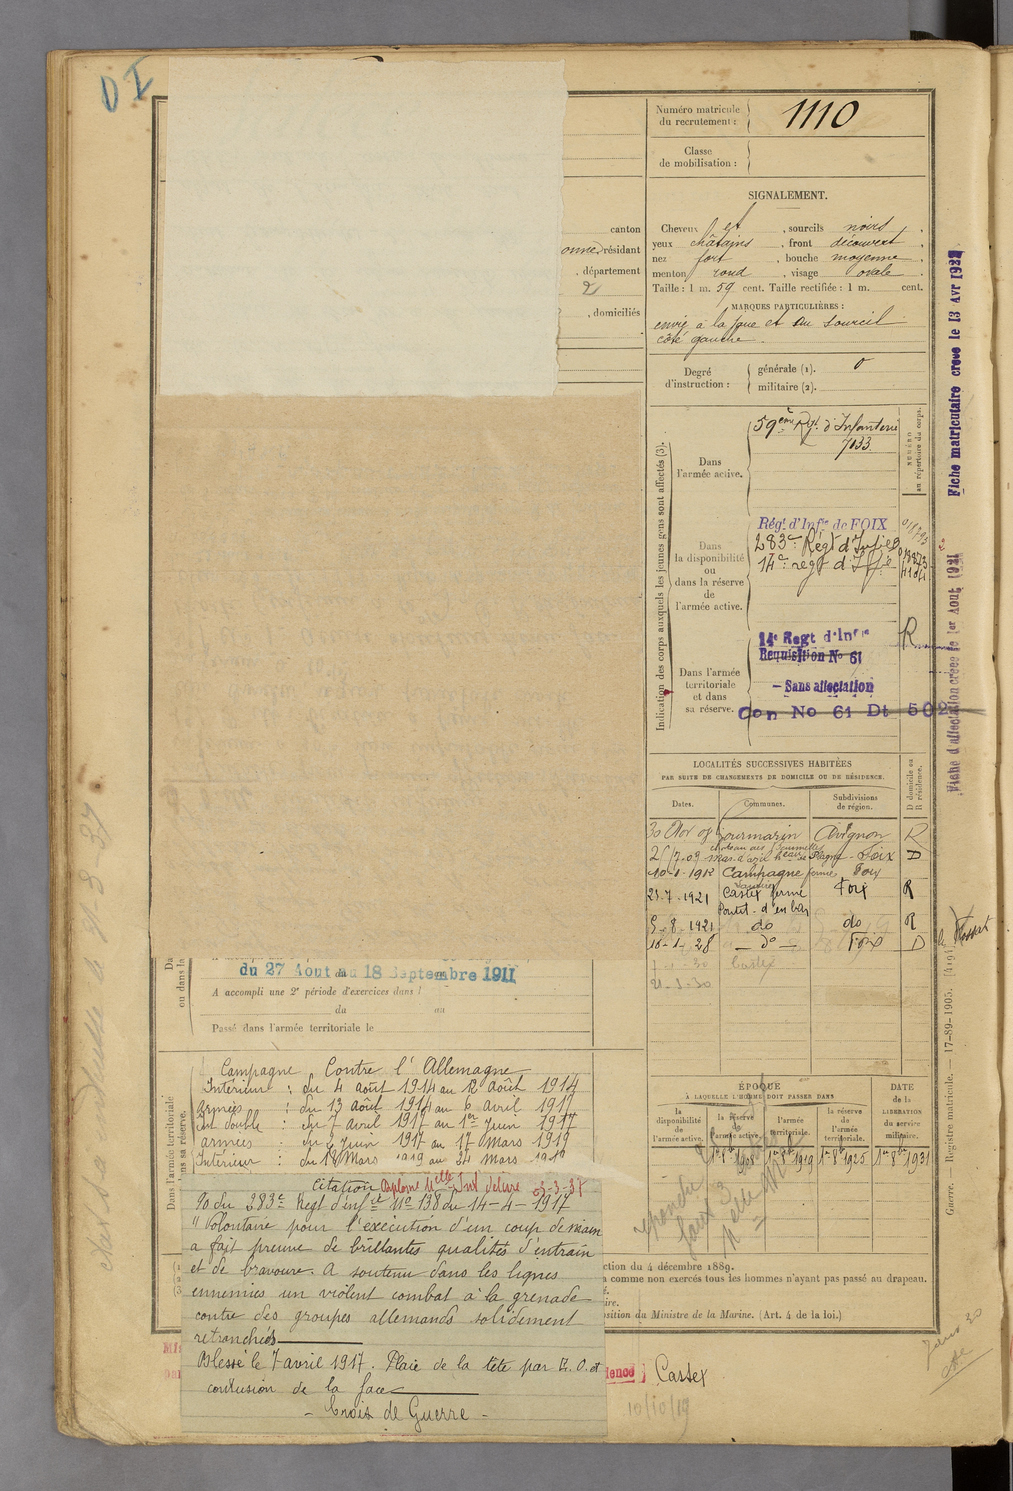 D I
Numéro matricule
du recrutement :
1110
Classe
de mobilisation :
SIGNALEMENT.
canton
Cheveux et , sourcils noirs .
onne résidant
yeux châtains , front découvert .
nez fort , bouche moyenne .
, département
menton rond , visage ovale .
2
Taille : 1 m. 59 cent. Taille rectifiée : 1 m. cent.
, domiciliés
MARQUES PARTICULIÈRES :
envie à la joue et au sourcil
côté gauche .
Degré
d'instruction :
générale (1). 0
militaire (2).
Indication des corps auxquels les jeunes gens sont affectés (3).
NUMÉRO
au répertoire du corps.
Dans
l'armée active.
59ème Rgt. d'Infanterie
7033
Dans
la disponibilité
ou
dans la réserve
de
l'armée active.
Régt d'Infie de FOIX
283e Régt d'Infie
14e régt d'Iffie
Dans l'armée
territoriale
et dans
sa réserve.
14e Regt d'Infie
R
Requisition No 61
- Sans affectation
Con No 61 Dt 502
Fiche matriculaire creee le 13 Avr
Fiche d'affectation creee le 1er Aout 1921
LOCALITÉS SUCCESSIVES HABITÉES
PAR SUITE DE CHANGEMENTS DE DOMICILE OU DE RÉSIDENCE.
Dates.
Communes.
Subdivisions
de région.
D domicile ou
R résidence.
30 Nov 07 Lourmarin Avignon R
Mas d'azil Foix D
10-1-1912 Campagne ferme Foix
Castex ferme Foix R
Pontet-d'en bas
5-8-1921 do do R
16-1-28 - do - Foix D
Castex
21-3-30
du 27 Aout au 18 Septembre 1911
A accompli une 2e période d'exercices dans l
du au
Passé dans l'armée territoriale le
Dans l'armée territoriale
ns sa réserve.
Campagne Contre l'Allemagne
Intérieur : du 4 août 1914 au 12 août 1914
armées : du 13 août 1914 au 6 avril 1917
Int double : du 7 avril 1917 au 1er Juin 1917
armées : du 2 Juin 1917 au 17 Mars 1919
Intérieur : du 18 Mars 1919 au 24 Mars 1919
ÉPOQUE
À LAQUELLE L'HOMME DOIT PASSER DANS
DATE
de la
LIBÉRATION
du service
militaire.
la
disponibilité
de
l'armée active.
la réserve
de
l'armée active.
l'armée
territoriale.
la réserve
de
l'armée
territoriale.
1er 8bre 1908
1er 8bre 1919
1er 8bre 1925
1er 8bre 1931
Citation Diplôme Melle Inf délivré 3-3-37
No du 283e Regt d'infie No 138 du 14-4-1917
" Volontaire pour l'exécution d'un coup de main
a fait preuve de brillantes qualités d'entrain
et de bravoure. A soutenu dans les lignes
ennemies un violent combat à la grenade
contre des groupes allemands solidement
retranchés
Blessé le 7 avril 1917. Plaie de la tête par E. O. et
contusion de la face
- Croix de Guerre -
ction du 4 décembre 1889.
a comme non exercés tous les hommes n'ayant pas passé au drapeau.
osition du Ministre de la Marine. (Art. 4 de la loi.)
dence Castex
10/10/19
Guerre. — Registre matricule. — 17-89-1905. [A19]